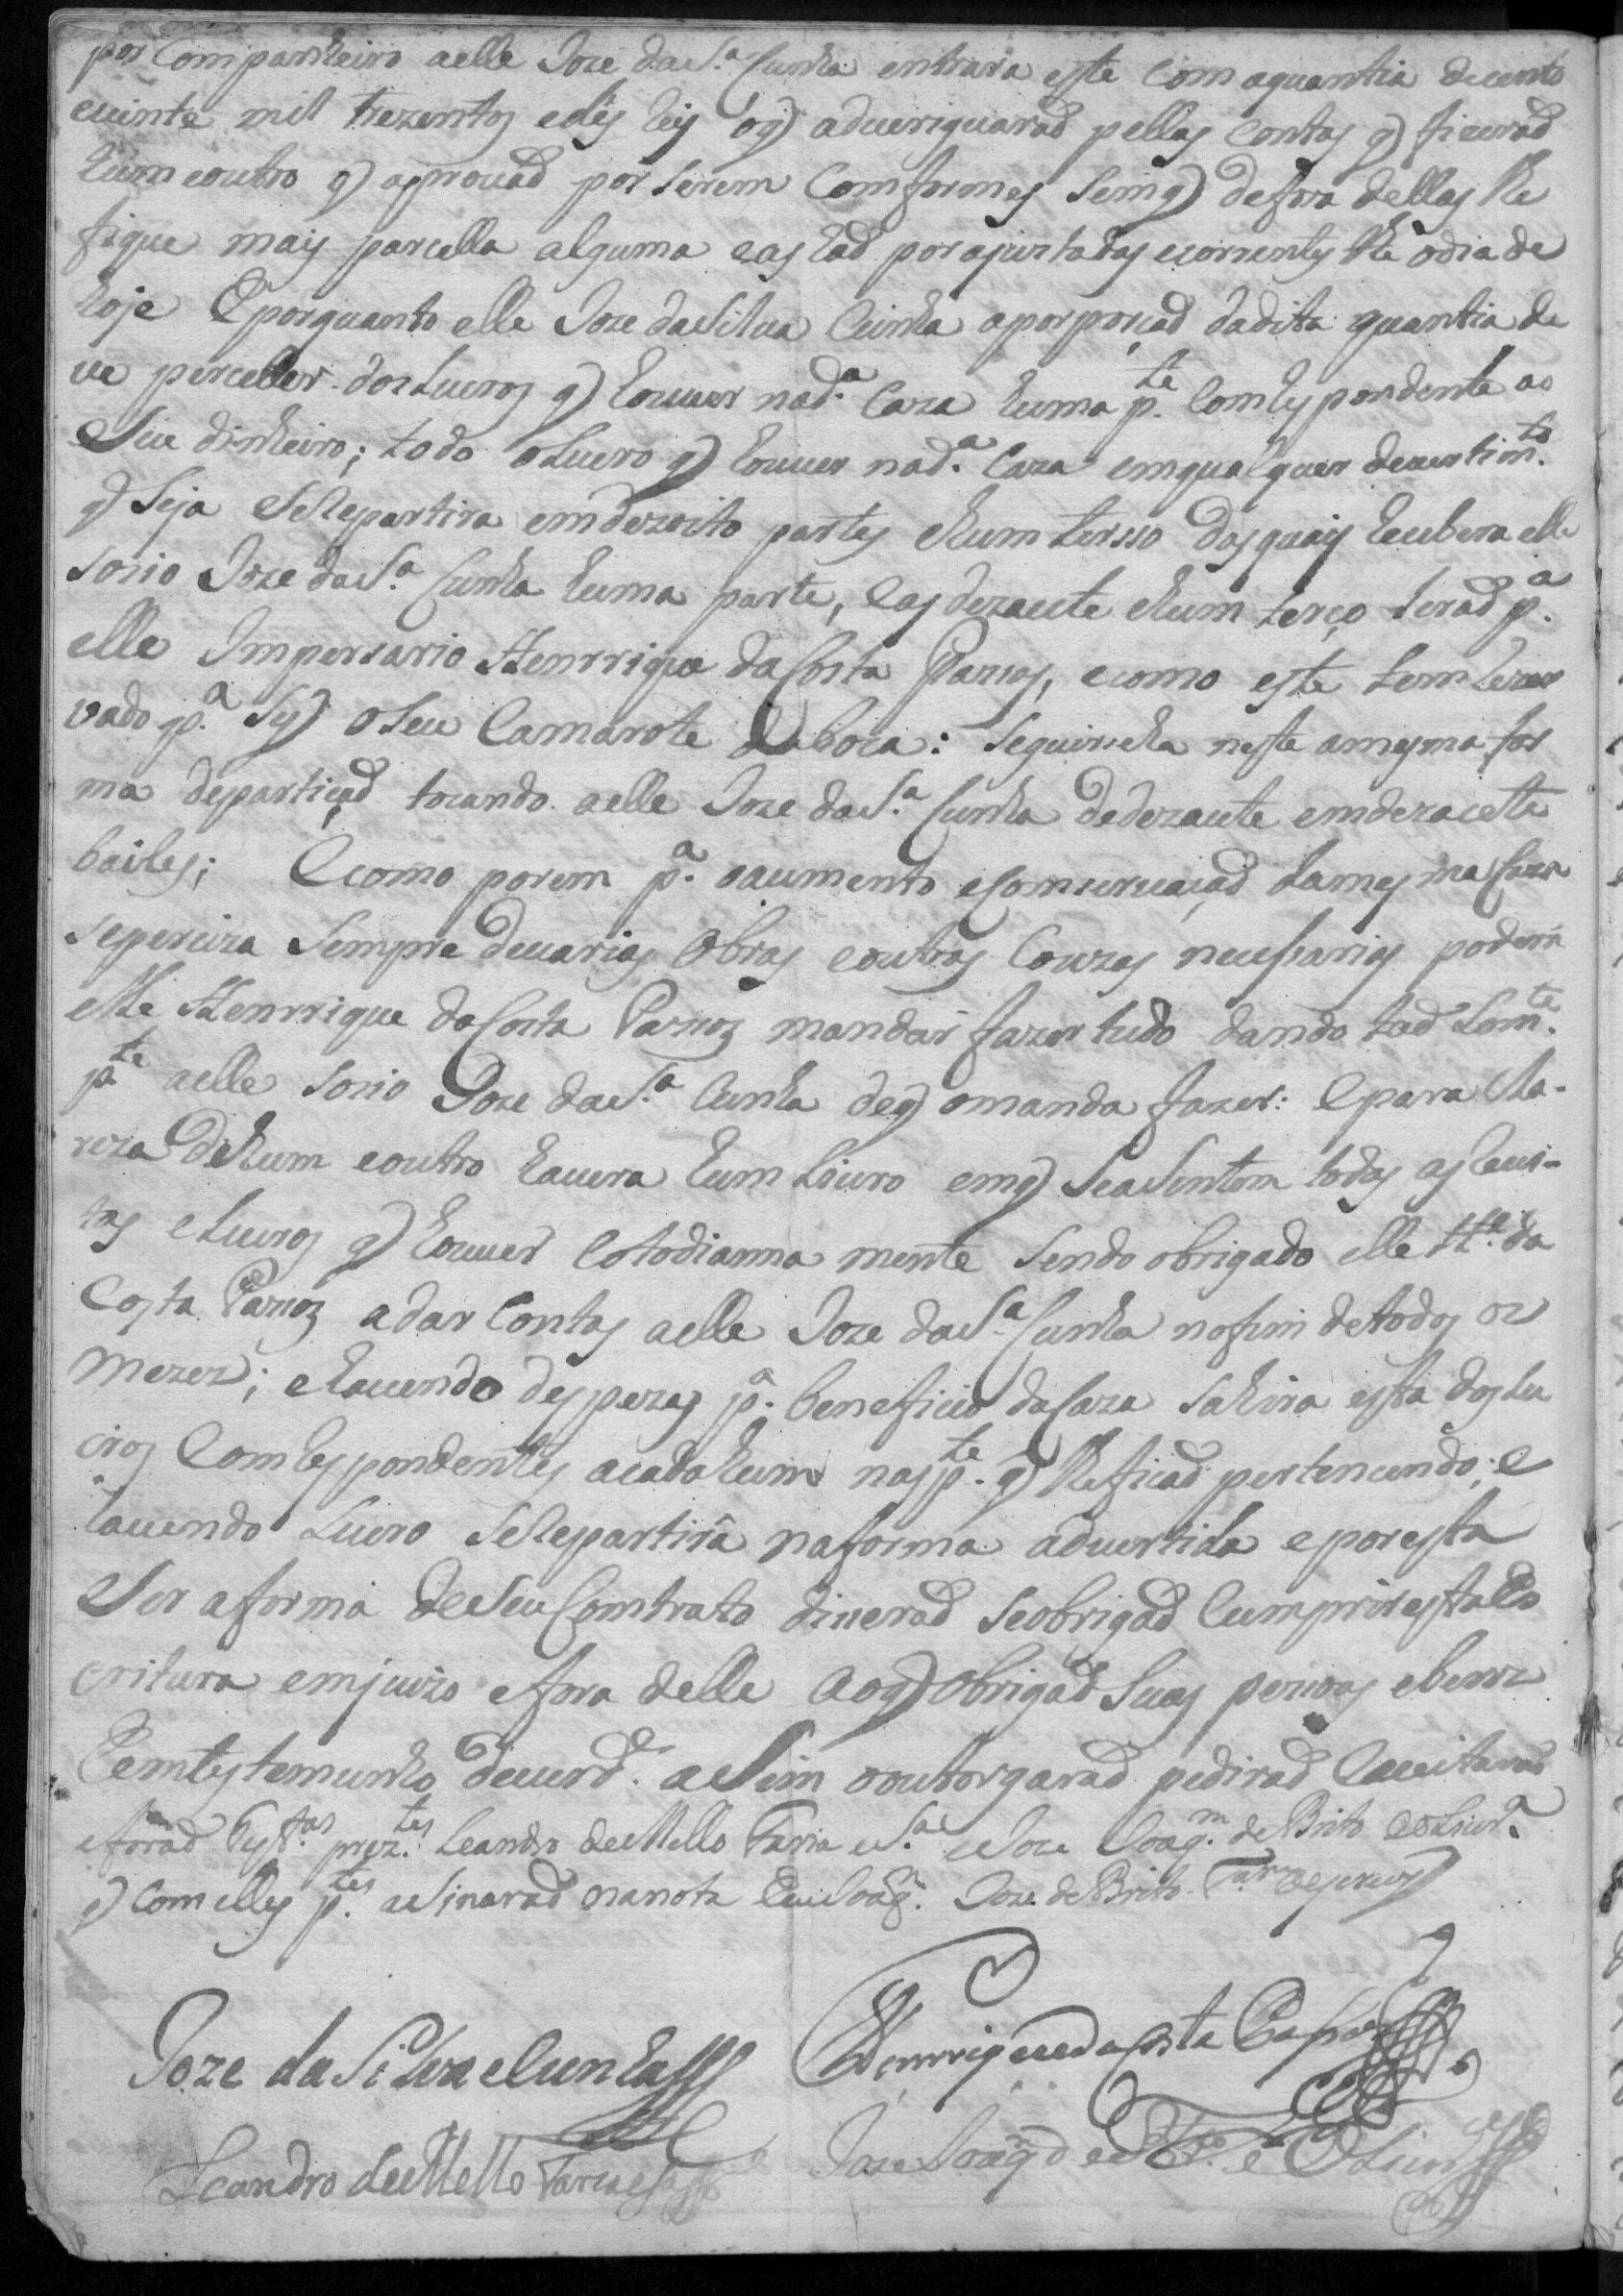 por Companheiro aelle Joze daS.ª Cunha entrara este Com aquantia decento
evinte mil trezentos edes reis oq) adveriguaraõ pellas Contas q) fizeraõ
hum eoutro q) aprovaõ por serem Comformes Sem q) defora dellas lhe
fique mais parcella alguma eas haõ por ajustadas ecorrentes the odia de
hoje Eporquanto elle Joze daSilva Cunha aporporçaõ dadita quantia de
ve perceber dos Lucros q) houver nad.ª Caza huma p.te Comrespondente ao
Seu dinheiro; todo oLucro q) houver nad.ª Caza emqualquer devertim.to
q) Seja Serepartira emdezoito partes ehum terço das quais recebera elle
socio Joze daS.ª Cunha huma parte, eas dezacete ehum terço seraõ p.ª
elle Impersario Henrrique daCosta Passos, ecomo este tem rezer
vado p.ª Sy) oSeu Camarote daboca: seguirscha neste amesma for
ma departiçaõ tocando aelle Joze daS.ª Cunha dedezacete emdezacete
bailes; Ecomo porem p.ª oaumento eComservaçaõ damesma Caza
sepereciza Sempre devarias Obras eoutras Couzas necessarias poderá
elle Henrrique daCosta Passos mandar fazer tudo dando taõ Som.te
p.te aelle socio Joze daS.ª Cunha deq) omanda fazer: Epara Cla-
reza dehum eoutro havera hum Livro emq) Seasentem todas as recei-
tas eLucros q) houver Cotodianna mente sendo obrigado elle H.e da
Costa Passos adar Contas aelle Joze daS.ª Cunha nofim detodos os
mezes; ehavendo despezas p.ª beneficio daCaza sahira esta dosLu
cros Comrespondentes acada hum nas p.te q) lheficaõ pertencendo; e
havendo Lucro Serepartirá naforma advertida eporesta
Ser aforma deSeu Contrato diceraõ Seobrigaõ Cumprir esta Es
critura emjuizo efora delle Aoq) obrigaõ Suas pesoas ebens
Eemtestemunho deverd.e aSim ooutorgaraõ pediraõ Eaceitaraõ
eforaõ test.as prez.tes Leandro deMello Faria eS.ª eJoze Joaq.m deBrito eoLivr.ª
q) Com elles p.tes aSinaraõ nanota EeuJoaq.m Joze deBrito T.am oescrevy
Joze da Silva eCunha Henrrique daCosta Passos
Leandro deMello Faria eSª Joze Joaqm de Bto. e OLivrª